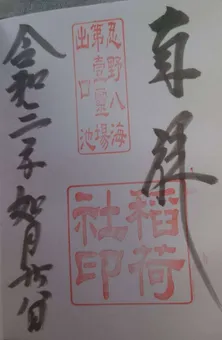 奉拝
忍野八海
第壹靈場
出口池
稲荷
社印
令和二年如月廿日